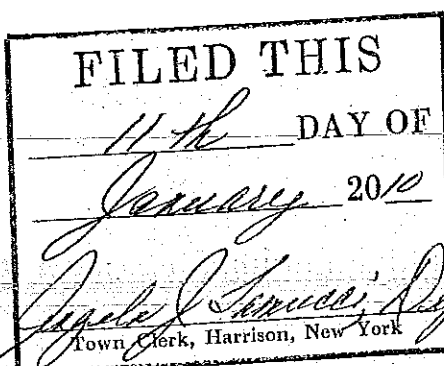 FILED THIS
11th DAY OF
January 2010
Angela J
Town Clerk, Harrison, New York